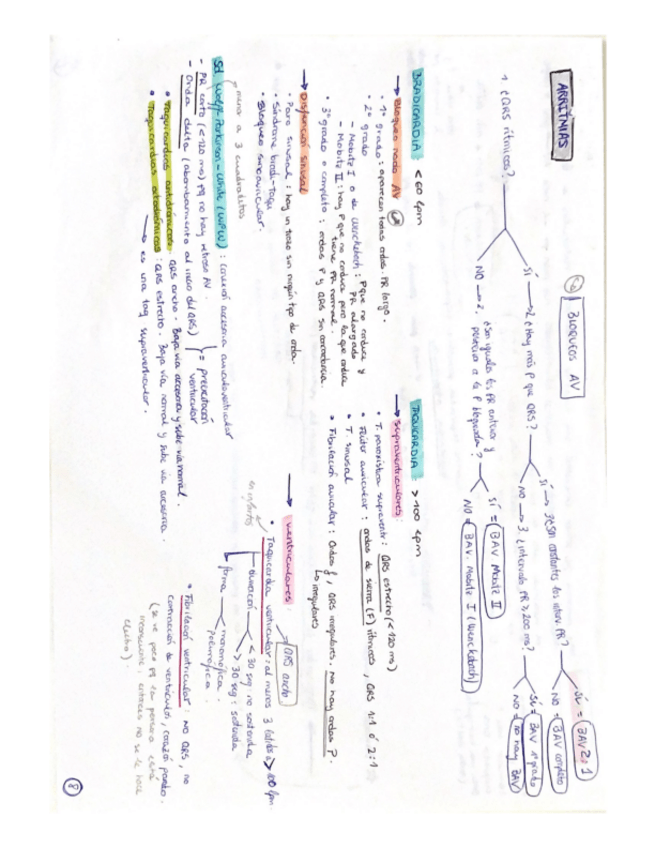 ARRITMIAS
BLOQUEOS AV
1. ¿QRS rítmicos?
SÍ → 2. ¿Hay más P que QRS?
SÍ → 3. ¿Son constantes los interv. PR?
SÍ = BAV 2:1
NO = BAV completo
NO → 3. ¿intervalo PR ≥ 200 ms?
SÍ = BAV 1º grado
NO = no hay BAV
NO → 2. ¿Son iguales los PR anterior y
posterior a la P bloqueada?
SÍ = BAV Mobitz II
NO = BAV Mobitz I (Wenckebach)
BRADICARDIA: < 60 lpm
→ Bloqueo nodo AV
• 1º grado: aparecen todas ondas. PR largo.
• 2º grado
- Mobitz I o de Wenckebach: P que no conduce y
PR alargado
- Mobitz II: hay P que no conduce pero la que conduce
tiene PR normal.
• 3º grado o completo: ondas P y QRS sin concordancia.
→ Disfunción sinusal
• Paro sinusal: hay un trazo sin ningún tipo de onda.
• Síndrome bradi-taqui
• Bloqueo sinoauricular.
TAQUICARDIA: > 100 lpm
→ Supraventriculares:
• T. paroxística supraventr: QRS estrecho (< 120 ms)
• Flúter auricular: ondas de sierra (F) rítmicas, QRS 1:1 ó 2:1
• T. sinusal
• Fibrilación auricular: Ondas f, QRS irregulares, no hay ondas P.
↳ irregulares
→ Ventriculares:
QRS ancho
• Taquicardia ventricular: al menos 3 latidos > 100 lpm.
en infartos
duración
< 30 seg no sostenida
> 30 seg = sostenida
forma
monomórfica
polimórfica.
• Fibrilación ventricular: NO QRS, no
contracción de ventrículos, corazón parado.
(se ve poco pq la persona está
inconsciente, entonces no se le hace
electro).
Sd Wolff-Parkinson-White (WPW): conexión accesoria auriculoventricular
menor a 3 cuadraditos
- PR corto (< 120 ms) pq no hay retraso AV.
- Onda delta (abombamiento al inicio del QRS)
= preexcitación
ventricular
• Taquicardias antidrómicas: QRS ancho. Baja vía accesoria y sube vía normal.
• Taquicardias ortodrómicas: QRS estrecho. Baja vía normal y sube vía accesoria.
→ es una taq supraventricular.
8